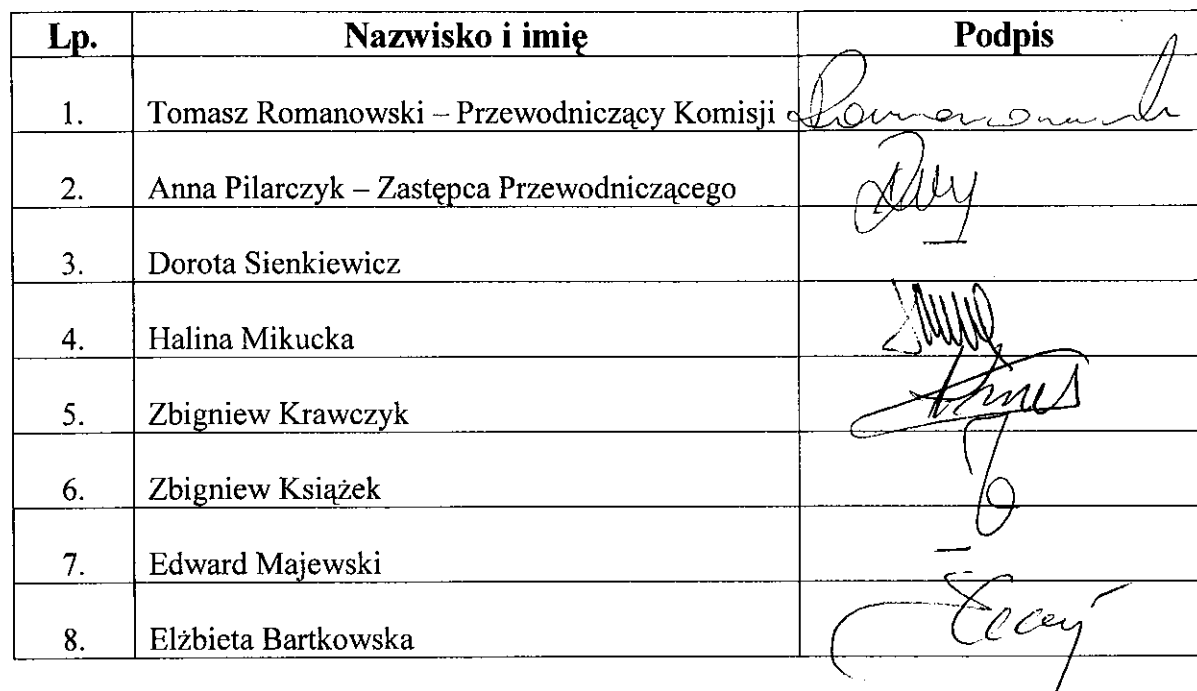 Lp. Nazwisko i imię Podpis
1. Tomasz Romanowski – Przewodniczący Komisji Romanowski
2. Anna Pilarczyk – Zastępca Przewodniczącego
3. Dorota Sienkiewicz —
4. Halina Mikucka
5. Zbigniew Krawczyk
6. Zbigniew Książek
7. Edward Majewski —
8. Elżbieta Bartkowska